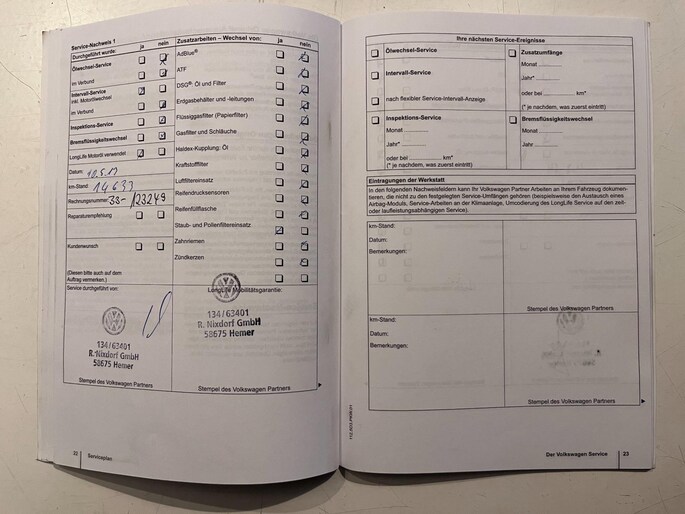 Service-Nachweis 1
Durchgeführt wurde: ja nein
Ölwechsel-Service
im Verbund
Intervall-Service
inkl. Motorölwechsel
im Verbund
Inspektions-Service
Bremsflüssigkeitswechsel
LongLife Motoröl verwendet
Datum:
km-Stand: 14633
Rechnungsnummer: /23249
Reparaturempfehlung
Kundenwunsch
(Diesen bitte auch auf dem
Auftrag vermerken.)
Service durchgeführt von:
134/63401
R. Nixdorf GmbH
58675 Hemer
Stempel des Volkswagen Partners
Zusatzarbeiten – Wechsel von: ja nein
AdBlue®
ATF
DSG®: Öl und Filter
Erdgasbehälter und -leitungen
Flüssiggasfilter (Papierfilter)
Gasfilter und Schläuche
Haldex-Kupplung: Öl
Kraftstofffilter
Luftfiltereinsatz
Reifendrucksensoren
Reifenfüllflasche
Staub- und Pollenfiltereinsatz
Zahnriemen
Zündkerzen
LongLife Mobilitätsgarantie:
134/63401
R. Nixdorf GmbH
58675 Hemer
Stempel des Volkswagen Partners
22 Serviceplan
Ihre nächsten Service-Ereignisse
Ölwechsel-Service
Intervall-Service
nach flexibler Service-Intervall-Anzeige
Zusatzumfänge
Monat
Jahr*
oder bei km*
(* je nachdem, was zuerst eintritt)
Inspektions-Service
Monat
Jahr*
oder bei km*
(* je nachdem, was zuerst eintritt)
Bremsflüssigkeitswechsel
Monat
Jahr
Eintragungen der Werkstatt
In den folgenden Nachweisfeldern kann Ihr Volkswagen Partner Arbeiten an Ihrem Fahrzeug dokumen-
tieren, die nicht zu den festgelegten Service-Umfängen gehören (beispielsweise den Austausch eines
Airbag-Moduls, Service-Arbeiten an der Klimaanlage, Umcodierung des LongLife Service auf den zeit-
oder laufleistungsabhängigen Service).
km-Stand:
Datum:
Bemerkungen:
Stempel des Volkswagen Partners
km-Stand:
Datum:
Bemerkungen:
Stempel des Volkswagen Partners
Der Volkswagen Service 23